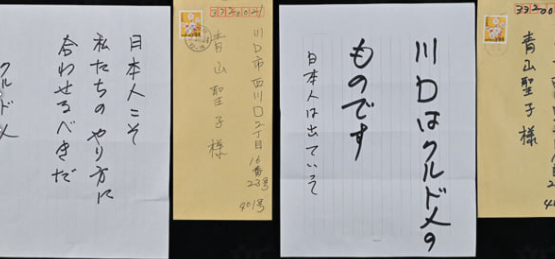 日本人こそ
私たちの やり方に
合わせるべきだ
クルド人
3320021
川口市 西川口2丁目
16番
23号
401号
青山聖子様
川口はクルド人の
ものです
日本人は出ていって
33200
青山聖子様